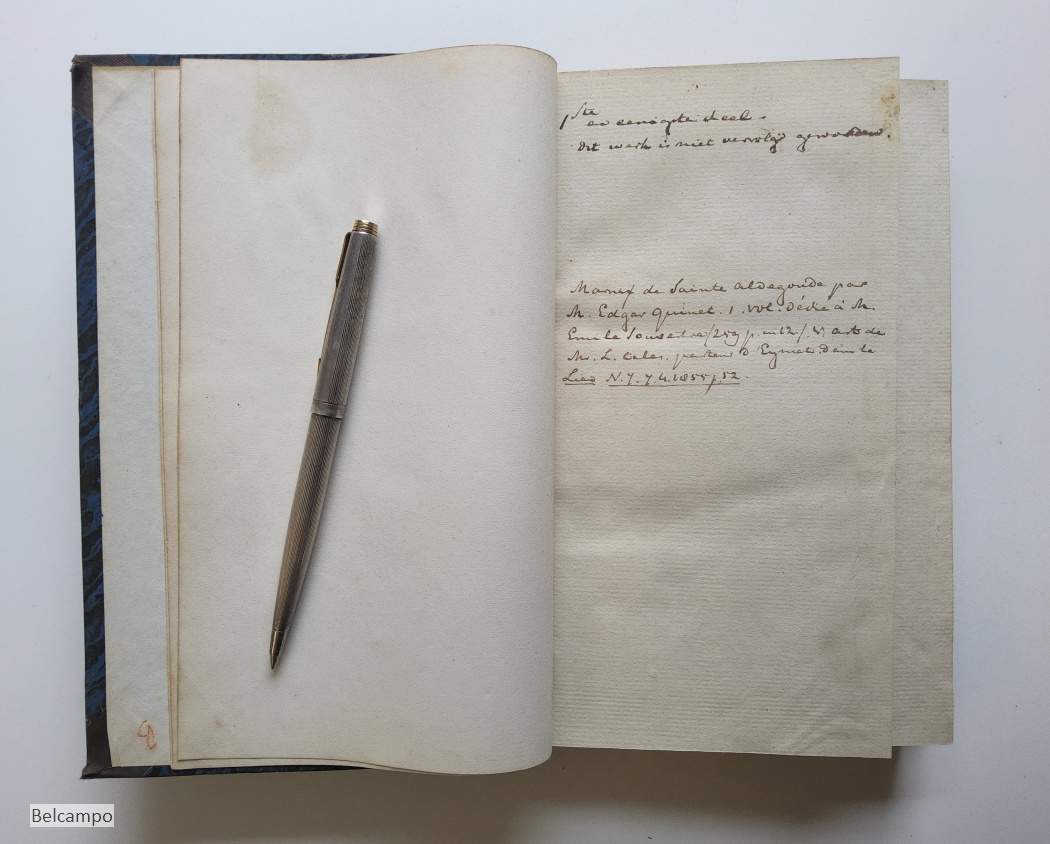 1ste en eenigste deel.
dit werk is niet vervolgd geworden.
Marnix de Sainte Aldegonde par
M. Edgar Quinet. 1. vol. Dédié à M.
Emile Souvestre /259 p. in 12./ V. art de
Mr. L. pasteur D Eymet. dans le
Lien N. 7. 7 4. 1855 p. 52.
Belcampo